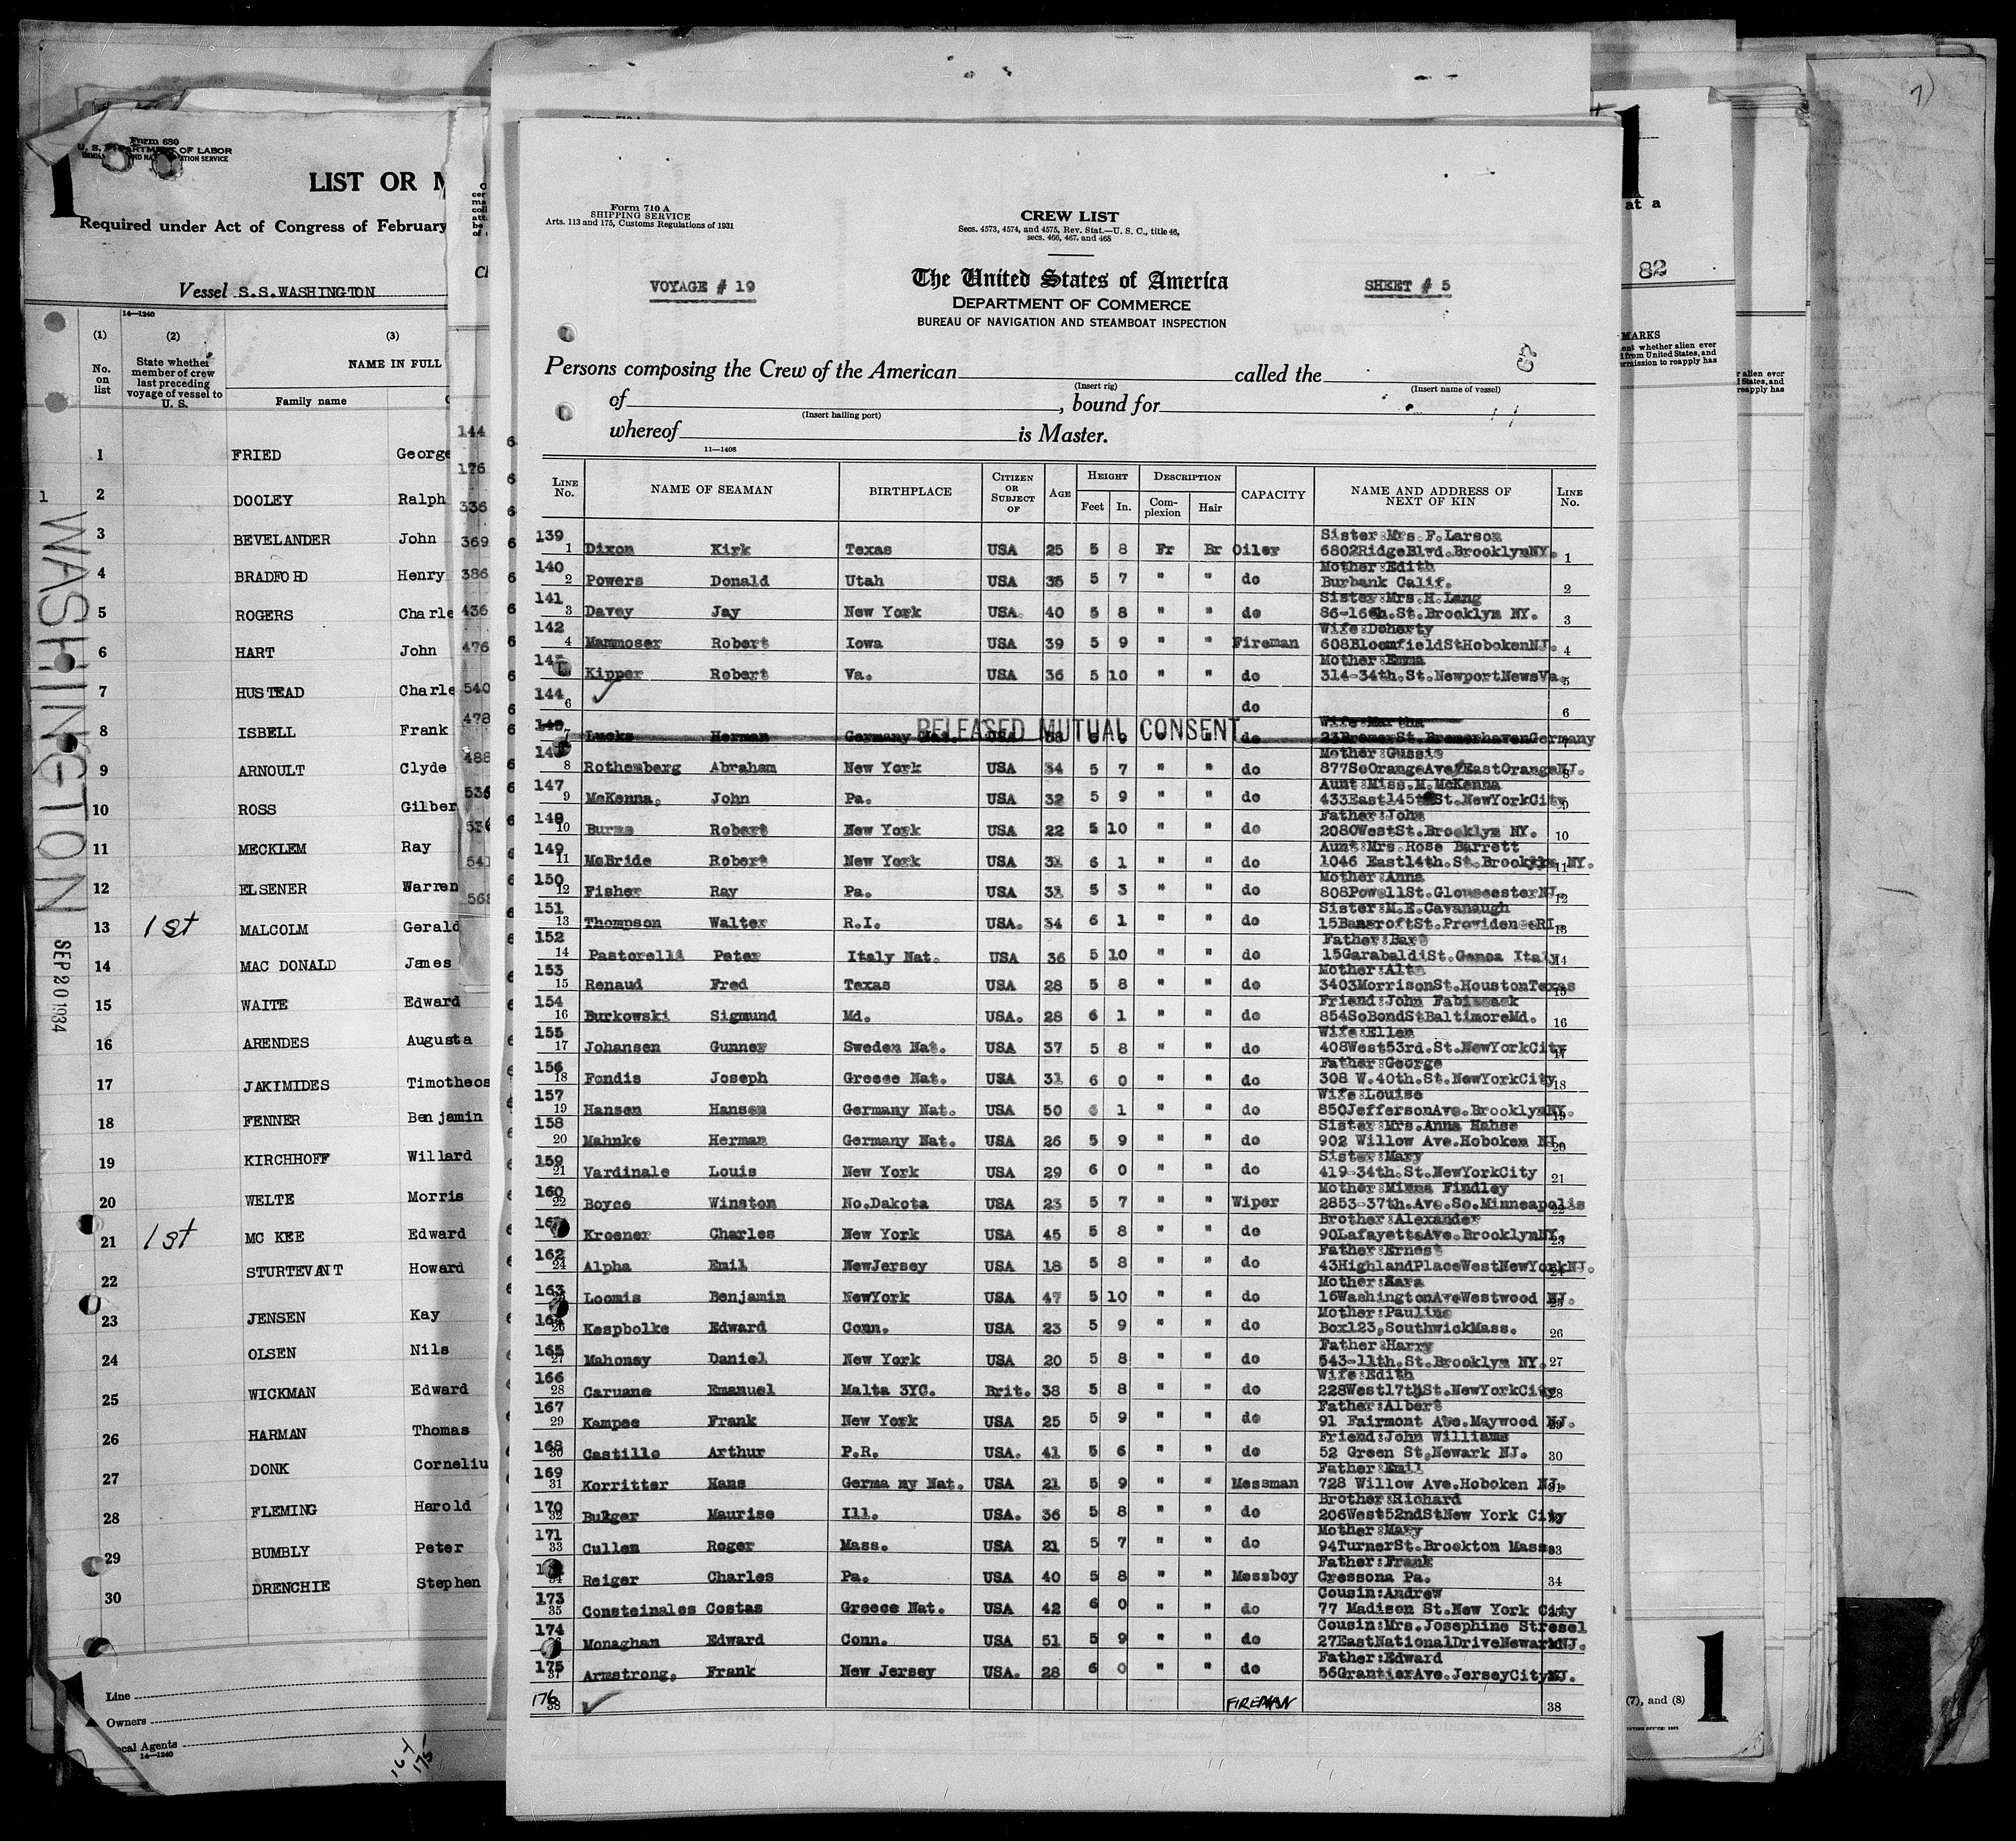 Form 680
U. S. DEPARTMENT OF LABOR
1
LIST OR
Required under Act of Congress of February
Vessel S.S.WASHINGTON
14—1240
(1) (2) (3)
No. on list
State whether member of crew last preceding voyage of vessel to U. S.
NAME IN FULL
Family name
1 FRIED George
2 DOOLEY Ralph
3 BEVELANDER John
4 BRADFORD Henry
5 ROGERS Charle
6 HART John
7 HUSTEAD Charle
8 ISBELL Frank
9 ARNOULT Clyde
10 ROSS Gilber
11 MECKLEM Ray
12 ELSENER Warren
13 1st MALCOLM Gerald
14 MAC DONALD James
15 WAITE Edward
16 ARENDES Augusta
17 JAKIMIDES Timotheos
18 FENNER Benjamin
19 KIRCHHOFF Willard
20 WELTE Morris
21 1st MC KEE Edward
22 STURTEVANT Howard
23 JENSEN Kay
24 OLSEN Nils
25 WICKMAN Edward
26 HARMAN Thomas
27 DONK Corneliu
28 FLEMING Harold
29 BUMBLY Peter
30 DRENCHIE Stephen
Line
Owners
Local Agents
14—1240
WASHINGTON SEP 20 1934
144
176
336
369
386
436
476
540
478
488
536
536
541
568
Form 710 A
SHIPPING SERVICE
Arts. 113 and 175, Customs Regulations of 1931
CREW LIST
Secs. 4573, 4574, and 4575, Rev. Stat.—U. S. C., title 46,
secs. 466, 467, and 468
VOYAGE # 19
The United States of America
SHEET # 5
DEPARTMENT OF COMMERCE
BUREAU OF NAVIGATION AND STEAMBOAT INSPECTION
Persons composing the Crew of the American called the
(Insert rig) (Insert name of vessel)
of , bound for
(Insert hailing port)
whereof is Master.
11—1408
LINE No. NAME OF SEAMAN BIRTHPLACE CITIZEN OR SUBJECT OF AGE HEIGHT Feet In. DESCRIPTION Complexion Hair CAPACITY NAME AND ADDRESS OF NEXT OF KIN LINE No.
139 Sister:Mrs.F.Larson
1 Dixon Kirk Texas USA 25 5 8 Fr Br Oiler 6802RidgeBlvd.BrooklynNY. 1
140 Mother:Edith
2 Powers Donald Utah USA 35 5 7 " " do Burbank Calif. 2
141 Sister:Mrs.H.Lang
3 Davey Jay New York USA. 40 5 8 " " do 86-16th.St.Brooklyn NY. 3
142 Wife:Doherty
4 Mammoser Robert Iowa USA 39 5 9 " " Fireman 608BloomfieldStHobokenNJ. 4
143 Mother:Emma
Kipper Robert Va. USA 36 5 10 " " do 314-34th.St.NewportNewsVa. 5
144
6 do 6
145 Wife:Martha
7 Lucks Herman Germany Nat. USA do 23BremerSt.BremerhavenGermany
RELEASED MUTUAL CONSENT
Mother:Gussie
8 Rothenberg Abraham New York USA 34 5 7 " " do 877SoOrangeAve/EastOrangeNJ. 8
147 Aunt:Miss.M.McKenna
9 McKenna, John Pa. USA 32 5 9 " " do 433East145thSt.NewYorkCity 9
148 Father:John
10 Burns Robert New York USA 22 5 10 " " do 2080WestSt.Brooklyn NY. 10
149 Aunt:Mrs.Rose Barrett
11 McBride Robert New York USA 31 6 1 " " do 1046 East14th.St.Brooklyn NY. 11
150 Mother:Anna
12 Fisher Ray Pa. USA 31 5 3 " " do 808PowellSt.GloucesterNJ. 12
151 Sister:M.E.Cavanaugh
13 Thompson Walter R.I. USA. 34 6 1 " " do 15BancroftSt.ProvidenceRI. 13
152 Father:Bart
14 Pastorelli Peter Italy Nat. USA 36 5 10 " " do 15GarabaldiSt.Genoa Italy 14
153 Mother:Alta
15 Renaud Fred Texas USA 28 5 8 " " do 3403MorrisonSt.HoustonTexas 15
154 Friend:John
16 Burkowski Sigmund Md. USA. 28 6 1 " " do 854SoBondStBaltimoreMd. 16
155 Wife:Ellen
17 Johansen Gunner Sweden Nat. USA 37 5 8 " " do 408West53rd.St.NewYorkCity 17
156 Father:George
18 Fondis Joseph Greece Nat. USA 31 6 0 " " do 308 W.40th.St.NewYorkCity 18
157 Wife:Louise
19 Hansen Hansen Germany Nat. USA 50 6 1 " " do 850JeffersonAve.BrooklynNY. 19
158 Sister:Mrs.Anna Hahse
20 Mahnke Herman Germany Nat. USA 26 5 9 " " do 902 Willow Ave.Hoboken NJ. 20
159 Sister:Mary
21 Vardinale Louis New York USA 29 6 0 " " do 419-34th.St.NewYorkCity 21
160 Mother:Minna Findley
22 Boyce Winston No.Dakota USA 23 5 7 " " Wiper 2853-37th.Ave.So.Minneapolis 22
Brother:Alexander
Kroener Charles New York USA 45 5 8 " " do 90LafayetteAve.BrooklynNY. 23
162 Father:Ernest
24 Alpha Emil NewJersey USA 18 5 8 " " do 43HighlandPlaceWestNewYorkNJ. 24
163 Mother:Kara
Loomis Benjamin NewYork USA 47 5 10 " " do 16WashingtonAveWestwood NJ. 25
164 Mother:Pauline
26 Kespholke Edward Conn. USA 23 5 9 " " do Box123,SouthwickMass. 26
165 Father:Harry
27 Mahoney Daniel New York USA 20 5 8 " " do 543-11th.St.Brooklyn NY. 27
166 Wife:Edith
28 Caruane Emanuel Malta 3YC. Brit. 38 5 8 " " do 228West17thSt.NewYorkCity 28
167 Father:Albert
29 Kampee Frank New York USA 25 5 9 " " do 91 Fairmont Ave.Maywood NJ. 29
168 Friend:John Williams
30 Castillo Arthur P.R. USA. 41 5 6 " " do 52 Green St,Newark NJ. 30
169 Father:Emil
31 Korritter Hans Germa ny Nat. USA 21 5 9 " " Messman 728 Willow Ave.Hoboken NJ. 31
170 Brother:Richard
32 Bulger Maurise Ill. USA. 36 5 8 " " do 206West52ndStNew York City
171 Mother:Mary
33 Cullen Roger Mass. USA 21 5 7 " " do 94TurnerSt.Brockton Mass. 33
Father:Frank
34 Reiger Charles Pa. USA 40 5 8 " " Messboy Cressona Pa. 34
173 Cousin:Andrew
35 Consteinales Costas Greece Nat. USA 42 6 0 " " do 77 Madison St.New York City
174 Cousin:Mrs.Josephine Stresel
Monaghan Edward Conn. USA 51 5 9 " " do 27EastNationalDriveNewarkNJ.
175 Father:Edward
37 Armstrong, Frank New Jersey USA. 28 6 0 " " do 56GrantierAve.JerseyCityNJ.
176
38 FIREMAN 38
1
at a
82
MARKS
(7), and (8)
1
175